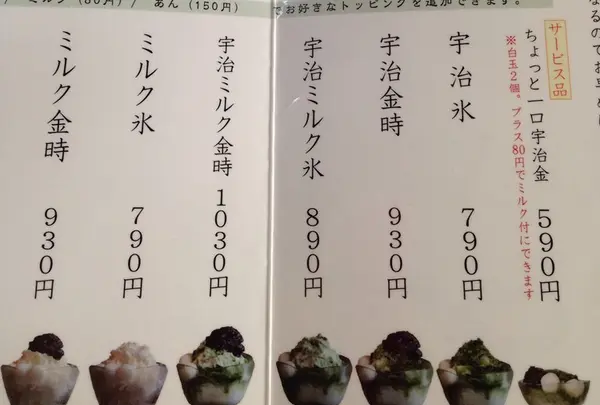 ミルク（80円）/ あん（150円）
でお好きなトッピングを追加できます。
サービス品
ちょっと一口宇治金 590円
※白玉2個。プラス80円でミルク付にできます
宇治氷 790円
宇治金時 930円
宇治ミルク氷 890円
宇治ミルク金時 1030円
ミルク氷 790円
ミルク金時 930円